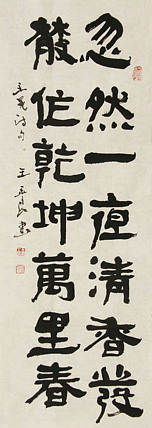 忽然一夜清香發
散作乾坤萬里春
王冕詩句
王
書